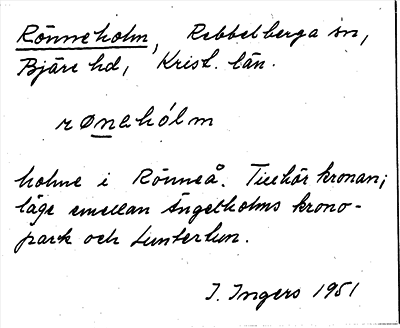 Rönneholm, Rebbelberga sn,
Bjäre hd, Krist. län.
rønəhólm
holme i Rönneå. Tillhör kronan;
läge emellan Ängelholms krono-
park och Lunterlun.
I. Ingers 1951